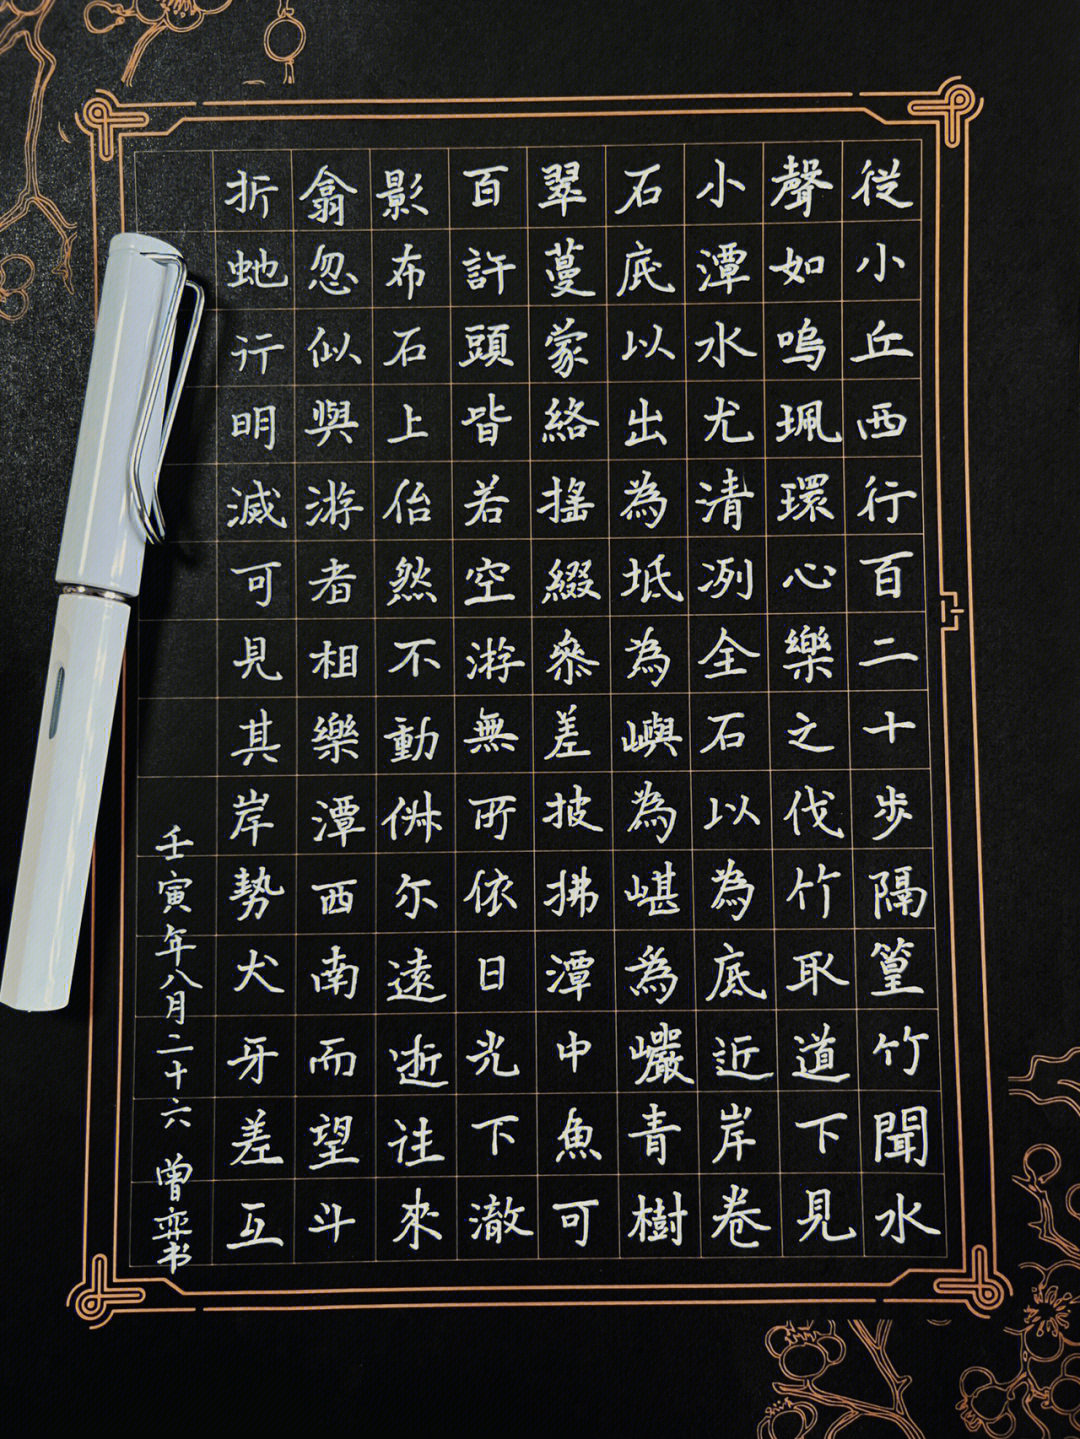 從小丘西行百二十步隔篁竹聞水
聲如嗚珮環心樂之伐竹取道下見
小潭水尤清冽全石以為底近岸卷
石底以出為坻為嶼為嵁為巖青樹
翠蔓蒙絡搖綴參差披拂潭中魚可
百許頭皆若空游無所依日光下澈
影布石上佁然不動俶尔遠逝往來
翕忽似與游者相樂潭西南而望斗
折虵行明滅可見其岸勢犬牙差互
壬寅年八月二十六 曾弈书